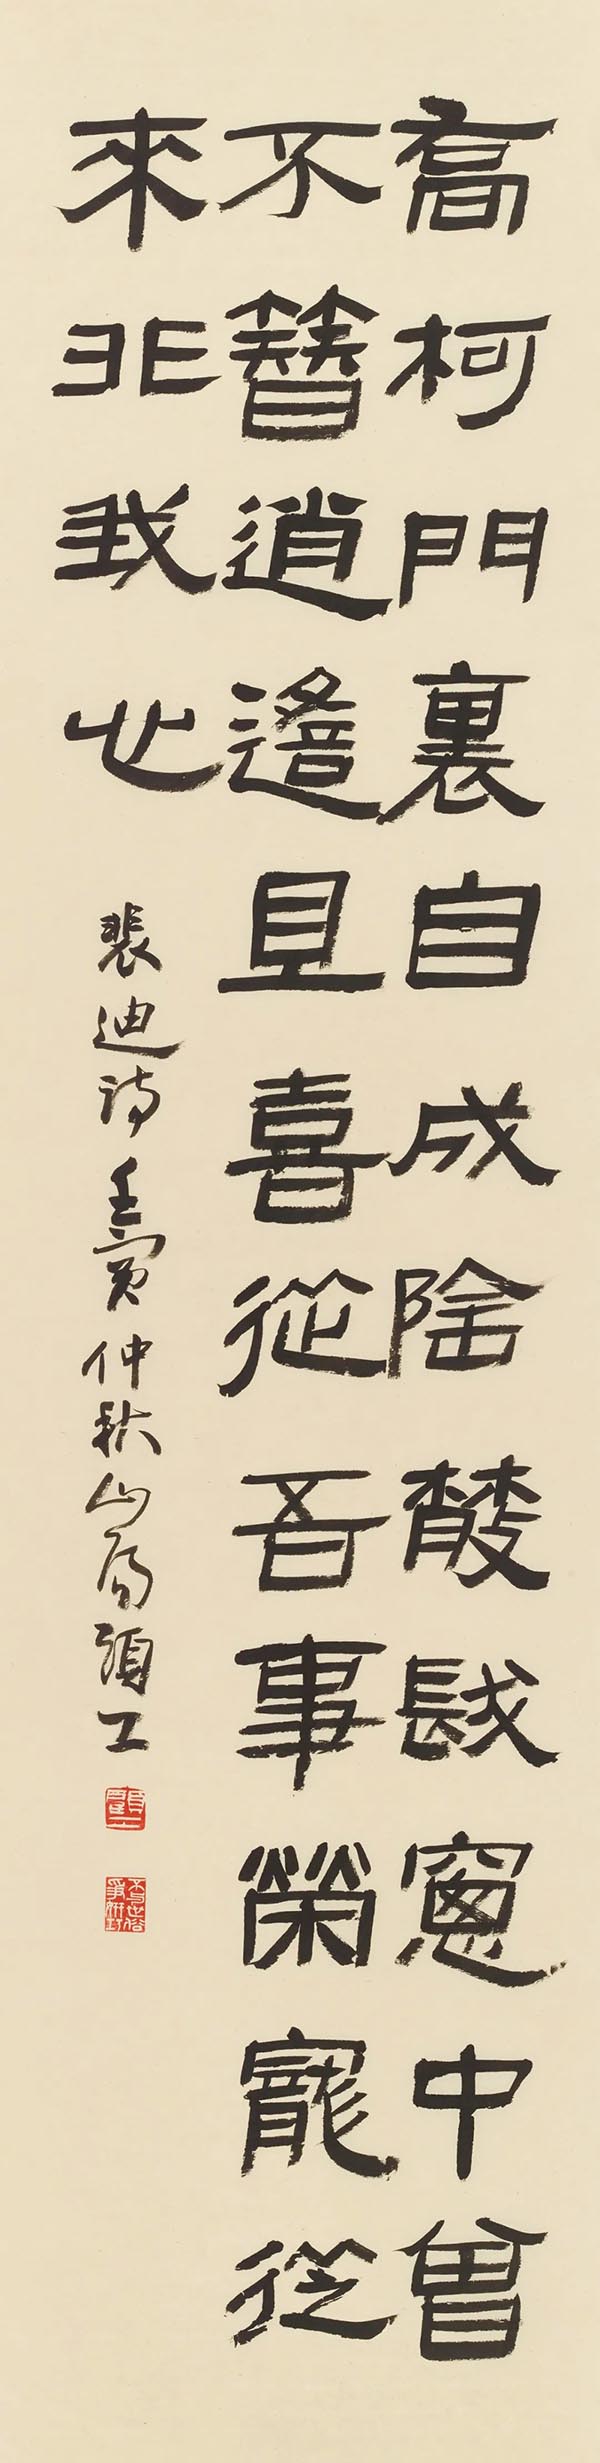 喬柯門裏自成陰散髮窻中曾
不簪逍遙且喜從吾事榮寵從
來非我心
裴迪詩壬寅仲秋山居頑工